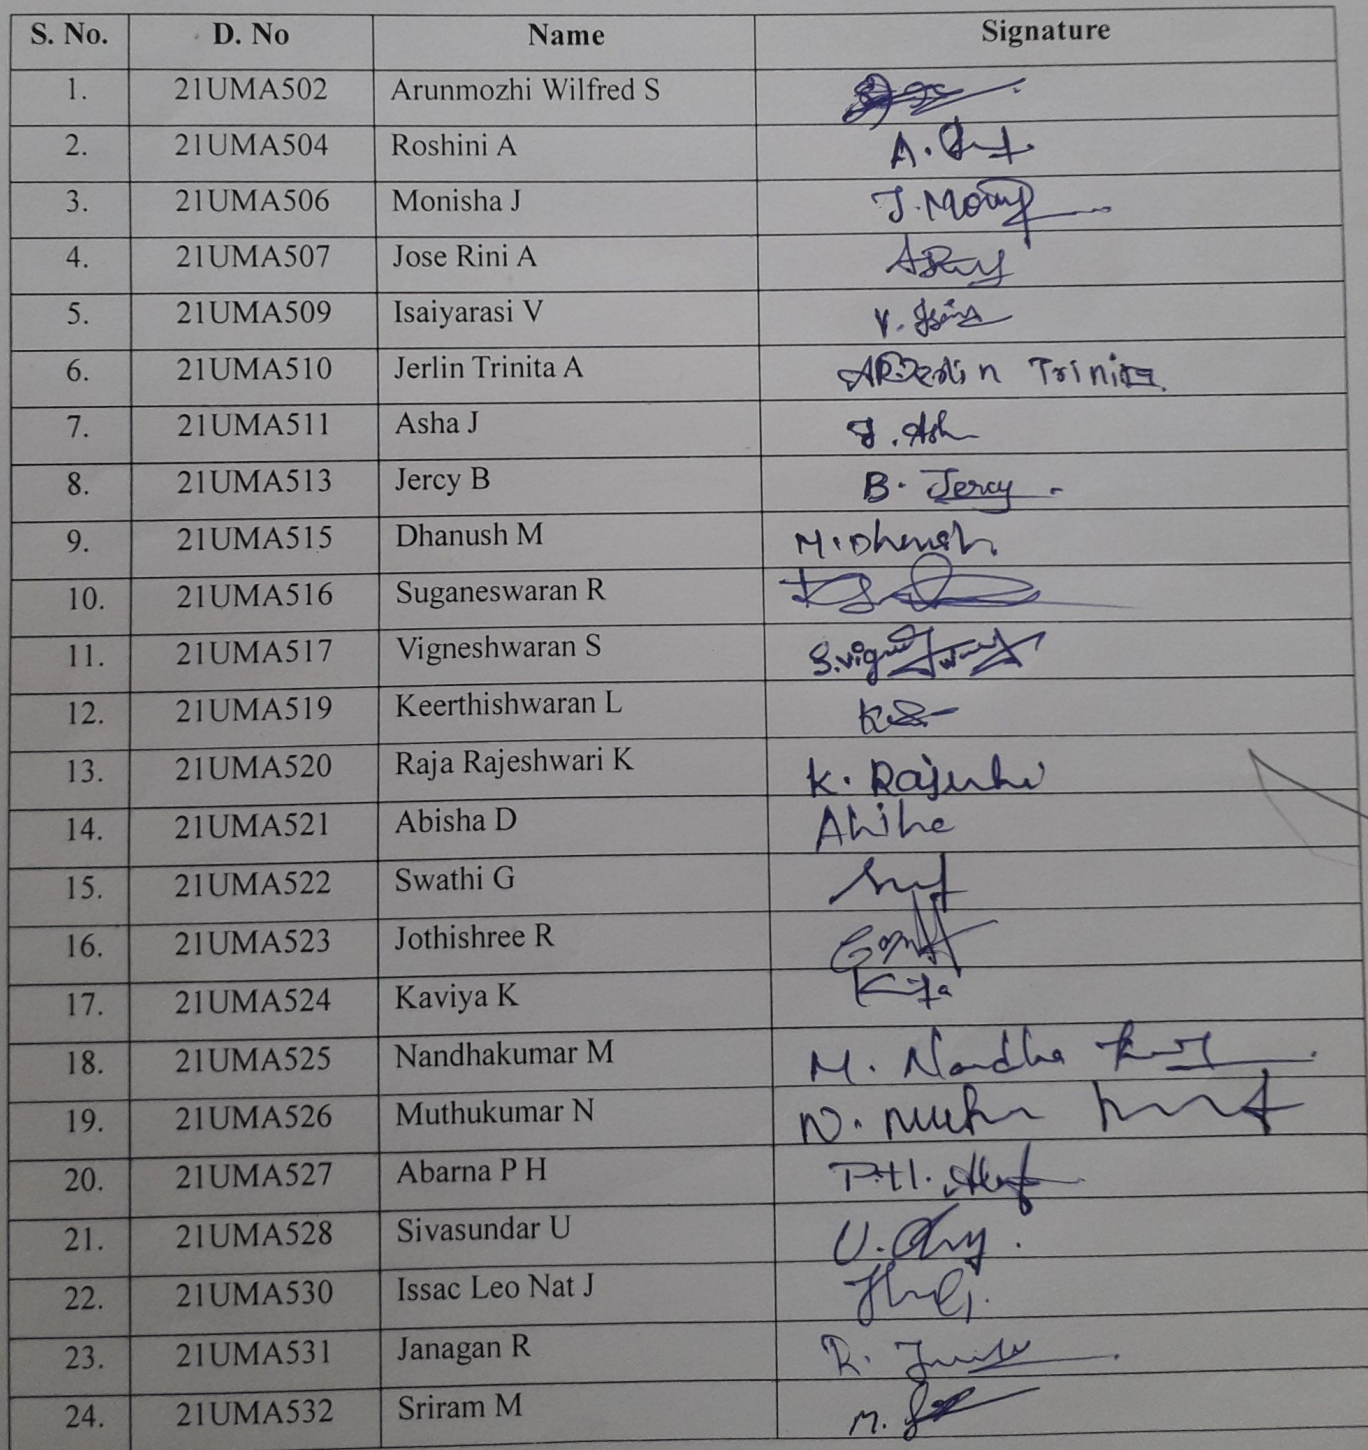 S. No. D. No Name Signature
1. 21UMA502 Arunmozhi Wilfred S
2. 21UMA504 Roshini A A.
3. 21UMA506 Monisha J J.
4. 21UMA507 Jose Rini A
5. 21UMA509 Isaiyarasi V V.
6. 21UMA510 Jerlin Trinita A Trinita
7. 21UMA511 Asha J J. Ash
8. 21UMA513 Jercy B B. Jercy
9. 21UMA515 Dhanush M M. Dhanush
10. 21UMA516 Suganeswaran R
11. 21UMA517 Vigneshwaran S
12. 21UMA519 Keerthishwaran L
13. 21UMA520 Raja Rajeshwari K K.
14. 21UMA521 Abisha D
15. 21UMA522 Swathi G
16. 21UMA523 Jothishree R
17. 21UMA524 Kaviya K
18. 21UMA525 Nandhakumar M M. Nandha
19. 21UMA526 Muthukumar N N.
20. 21UMA527 Abarna P H P.H.
21. 21UMA528 Sivasundar U U.
22. 21UMA530 Issac Leo Nat J
23. 21UMA531 Janagan R R.
24. 21UMA532 Sriram M M.